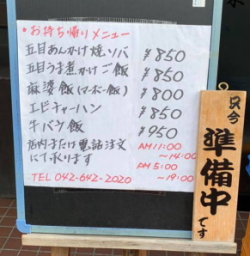 *お持ち帰りメニュー
五目あんかけ焼ソバ ¥850
五目うま煮かけご飯 ¥850
麻婆飯(マーボー飯) ¥800
エビチャーハン ¥850
牛バラ飯 ¥950
店内または電話注文
にて承ります
AM11:00
~14:00
PM5:00
~19:00
TEL 042-642-2020
只今
準備中
です